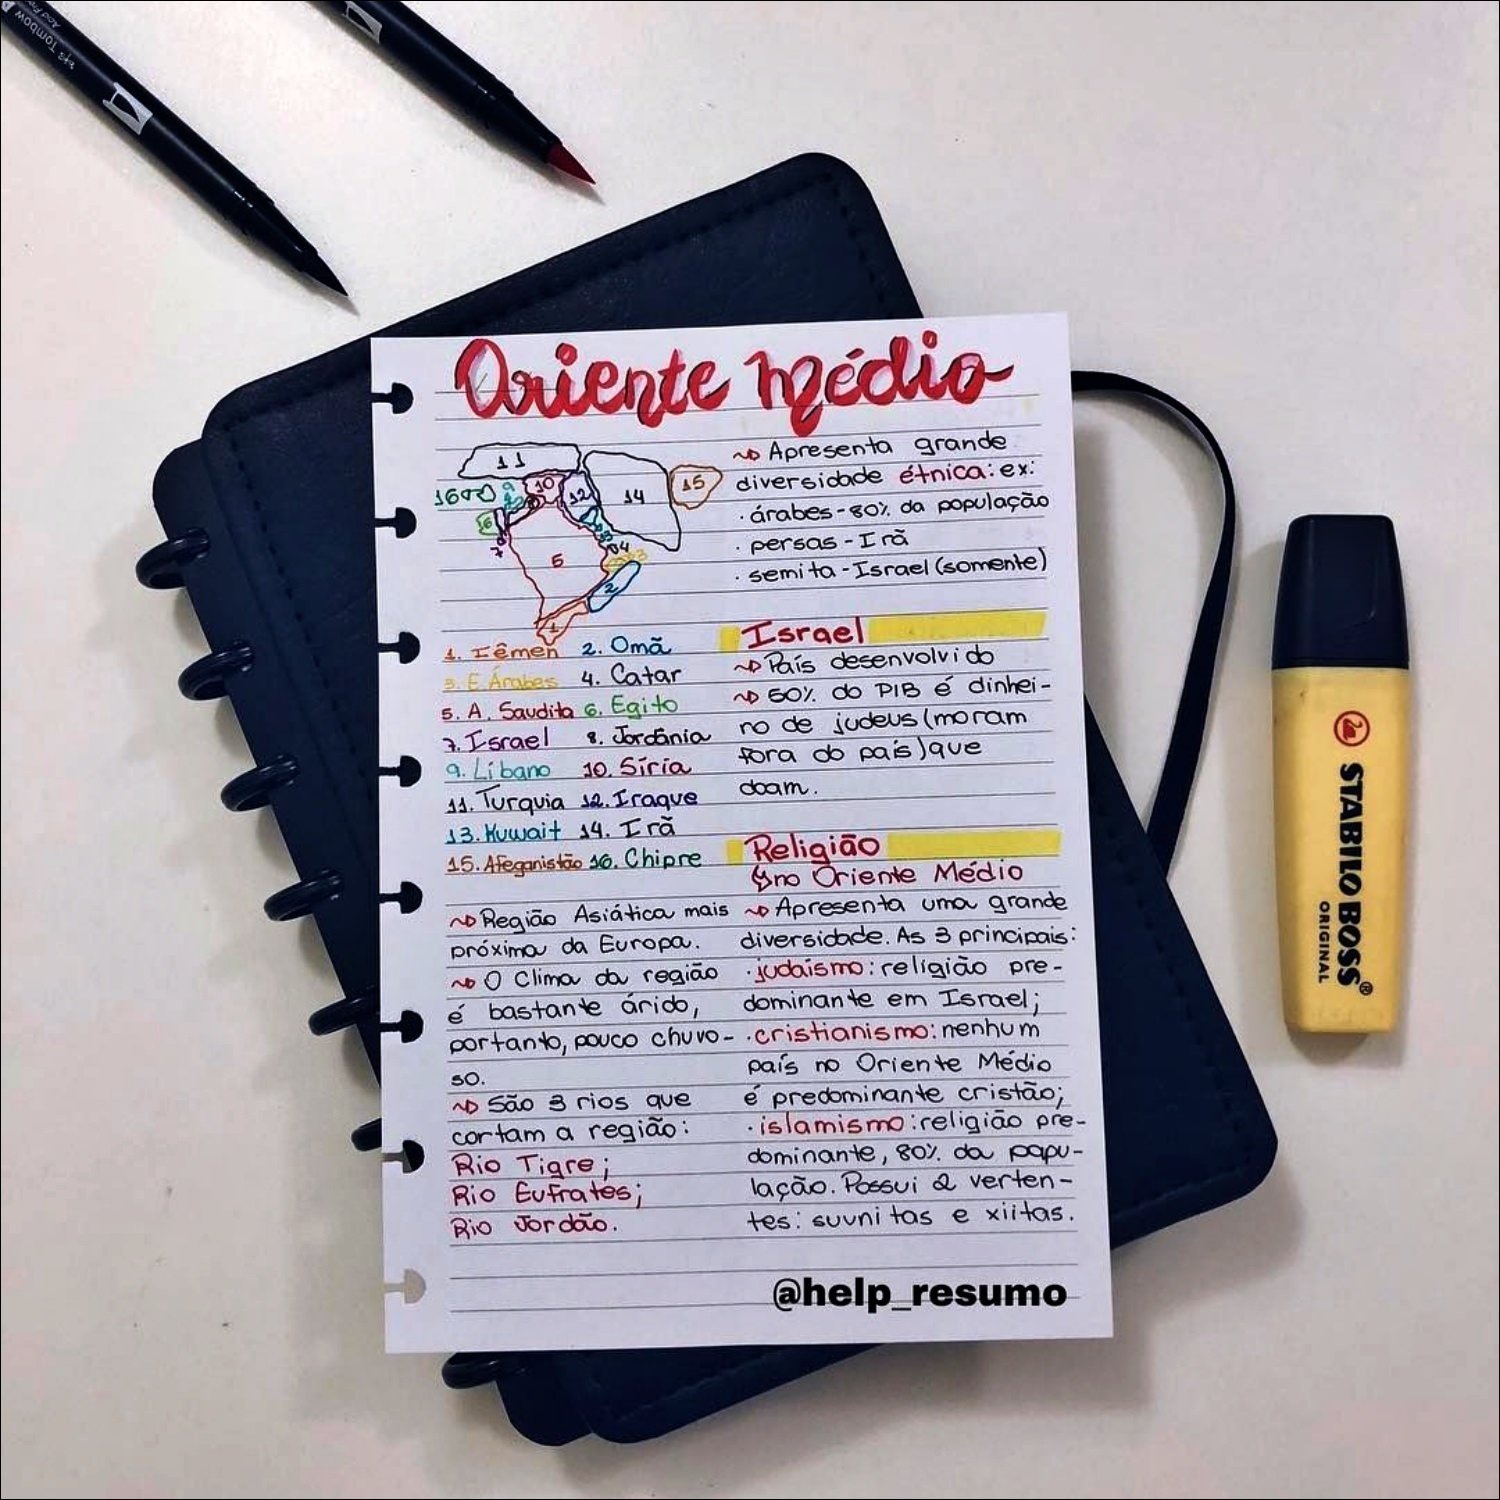 Tombow
Oriente Médio
11
10
9
12
14
15
16
6
8
7
13
5
4
3
2
1
1. Iêmen 2. Omã
3. E. Árabes 4. Catar
5. A. Saudita 6. Egito
7. Israel 8. Jordânia
9. Líbano 10. Síria
11. Turquia 12. Iraque
13. Kuwait 14. Irã
15. Afeganistão 16. Chipre
Região Asiática mais
próxima da Europa.
O Clima da região
é bastante árido,
portanto, pouco chuvo-
so.
São 3 rios que
cortam a região:
Rio Tigre;
Rio Eufrates;
Rio Jordão.
Apresenta grande
diversidade étnica: ex:
· árabes - 80% da população
· persas - Irã
· semita - Israel (somente)
Israel
País desenvolvido
60% do PIB é dinhei-
ro de judeus (moram
fora do país) que
doam.
Religião
no Oriente Médio
Apresenta uma grande
diversidade. As 3 principais:
· judaísmo: religião pre-
dominante em Israel;
· cristianismo: nenhum
país no Oriente Médio
é predominante cristão;
· islamismo: religião pre-
dominante, 80% da popu-
lação. Possui 2 verten-
tes: suvnitas e xiitas.
@help_resumo
STABILO BOSS®
ORIGINAL